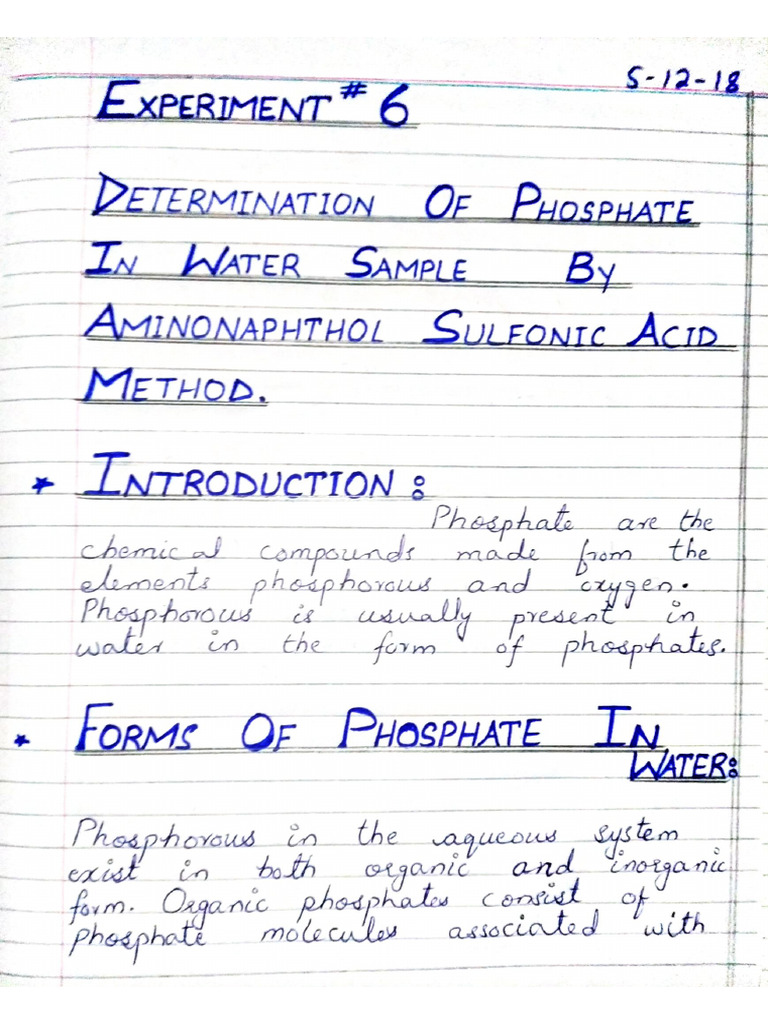 5-12-18
EXPERIMENT # 6
DETERMINATION OF PHOSPHATE
IN WATER SAMPLE BY
AMINONAPHTHOL SULFONIC ACID
METHOD.
* INTRODUCTION :
Phosphate are the
chemical compounds made from the
elements phosphorous and oxygen.
Phosphorous is usually present in
water in the form of phosphates.
* FORMS OF PHOSPHATE IN
WATER:
Phosphorous in the aqueous system
exist in both organic and inorganic
form. Organic phosphates consist of
phosphate molecules associated with